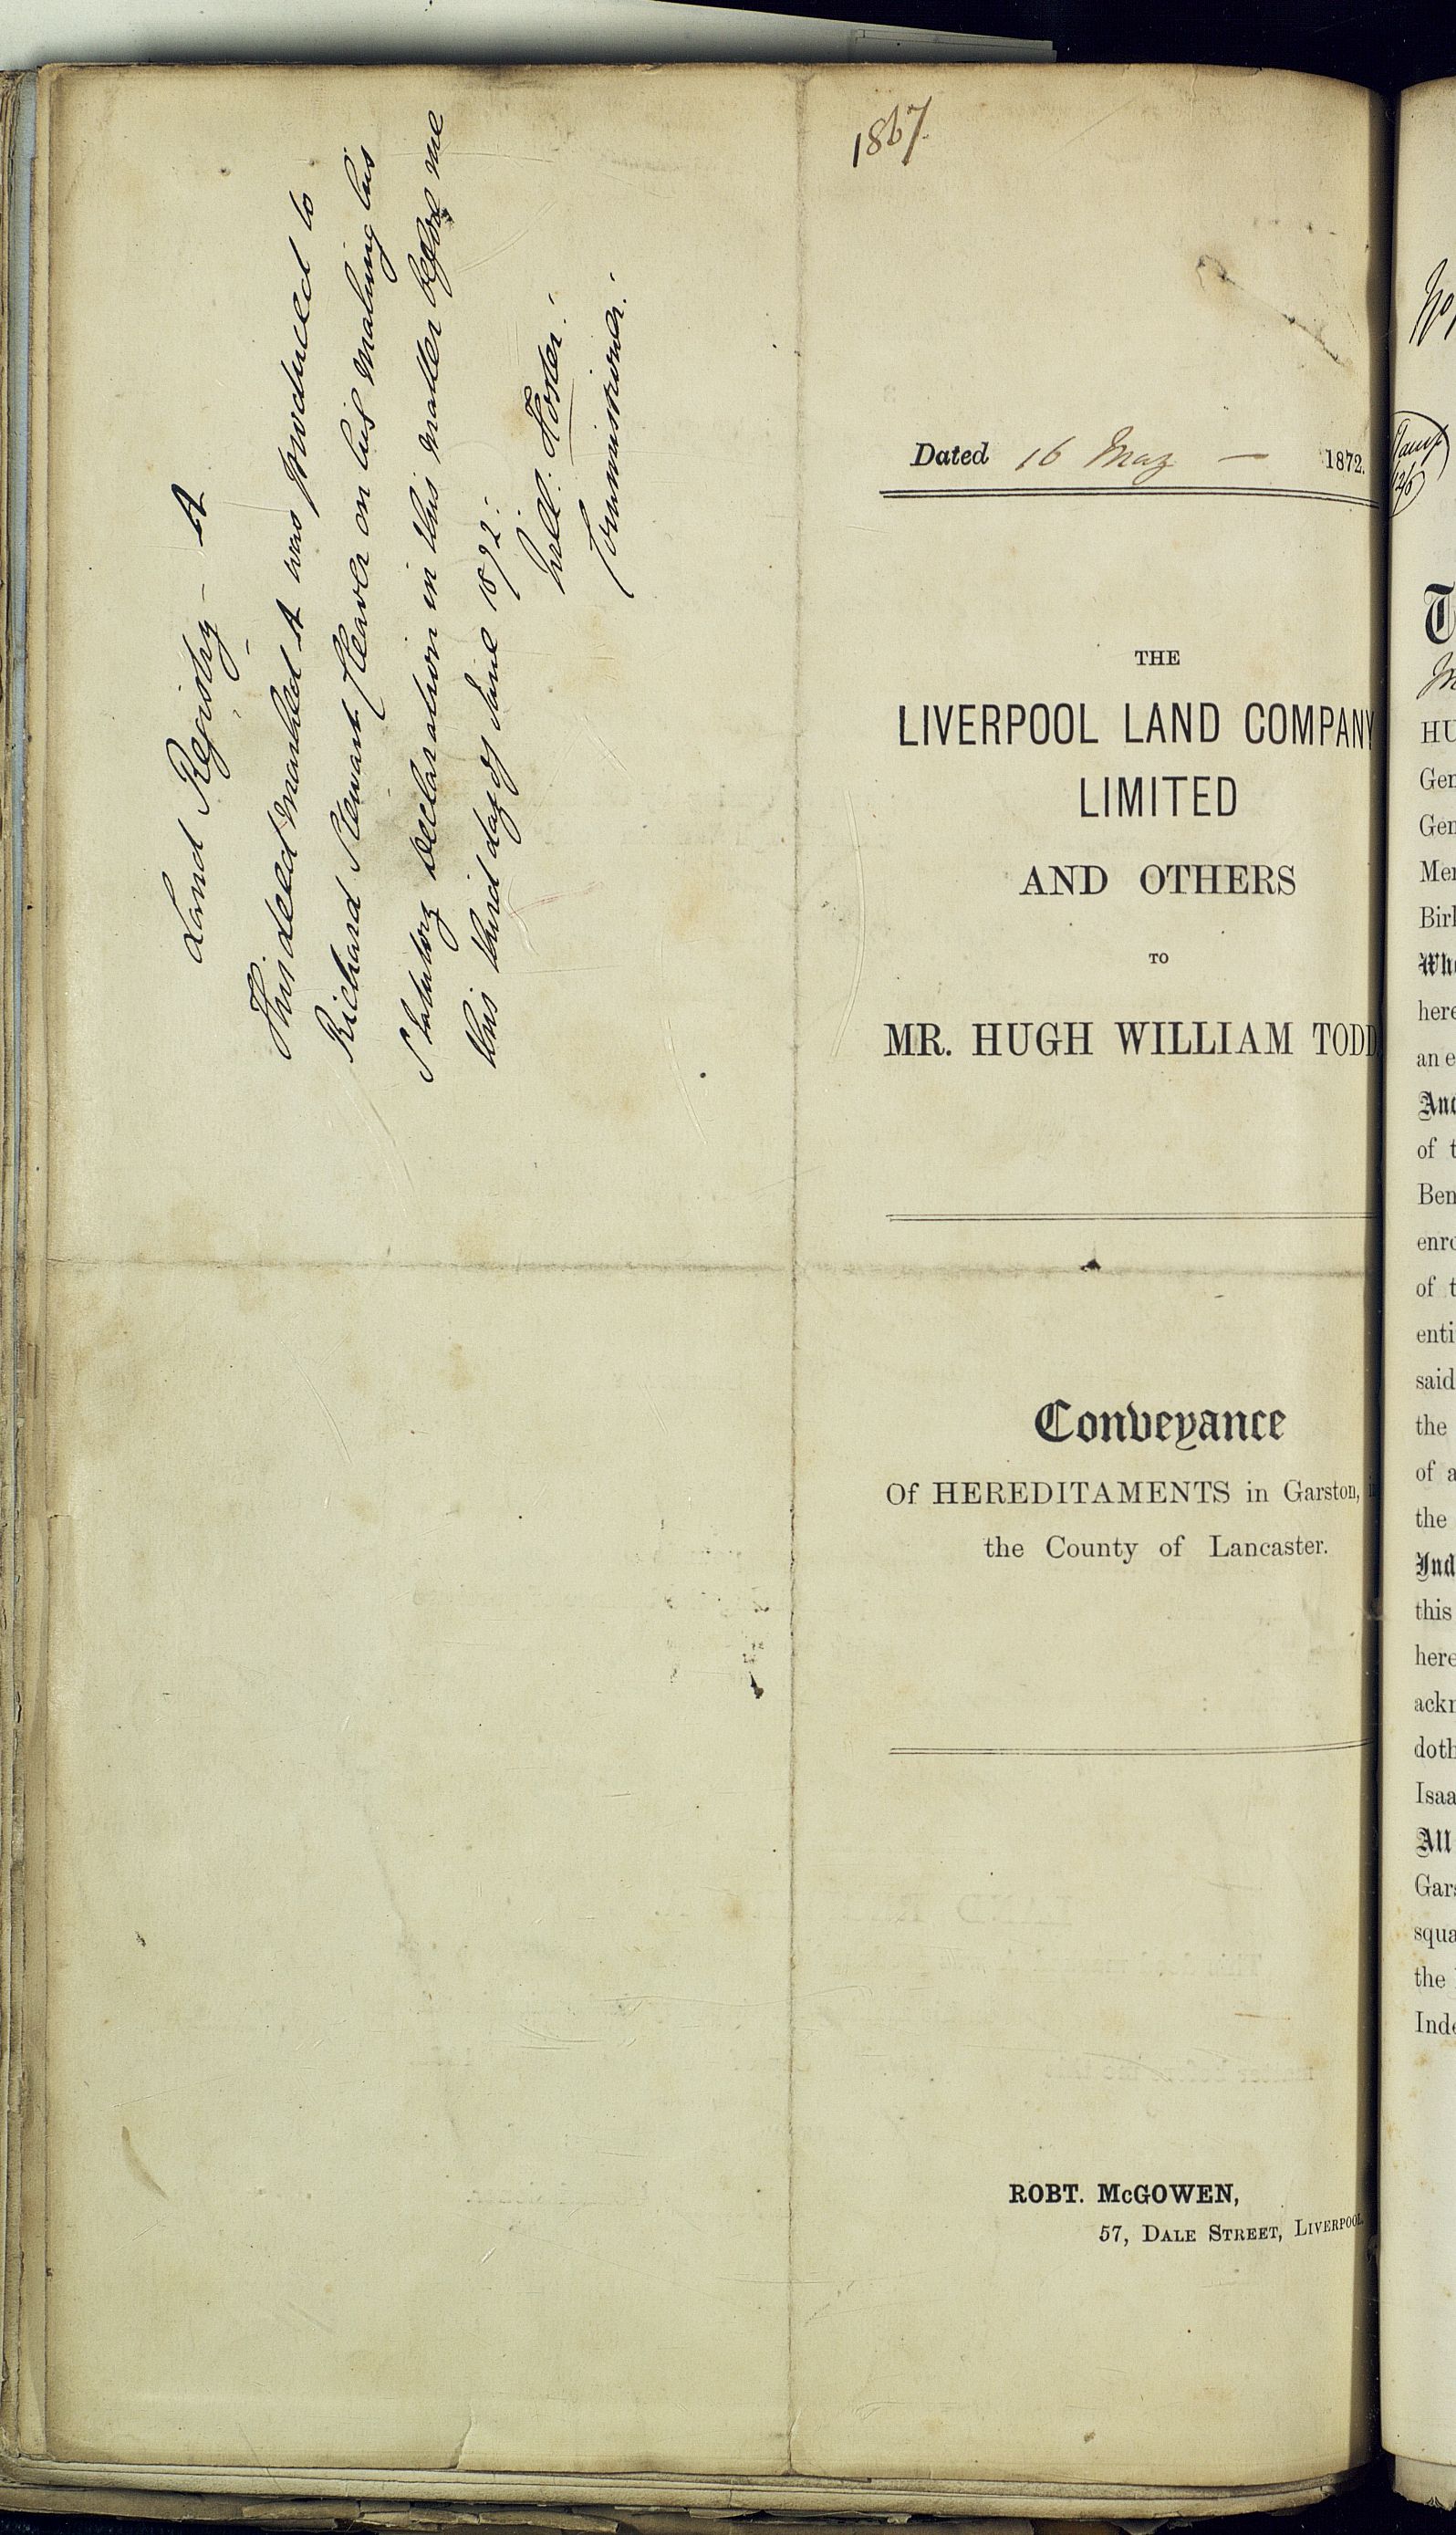 Land Registry - A
This deed marked A was produced to
Richard Stewart Cleaver on his making his
Statutory Declaration in this matter before me
this third day of June 1892.
Will: Foster.
Commissioner.
1867.
Dated 16 May — 1872.
THE
LIVERPOOL LAND COMPANY
LIMITED
AND OTHERS
TO
MR. HUGH WILLIAM TODD
Conveyance
Of HEREDITAMENTS in Garston,
the County of Lancaster.
ROBT. McGOWEN,
57, DALE STREET, LIVERPOOL.
HU
Gen
Gen
Mer
Birk
Whe
here
an e
And
of t
Ben
enro
of t
enti
said
the
of a
the
Ind
this
here
ackn
doth
Isaa
All
Gars
squa
the
Inde